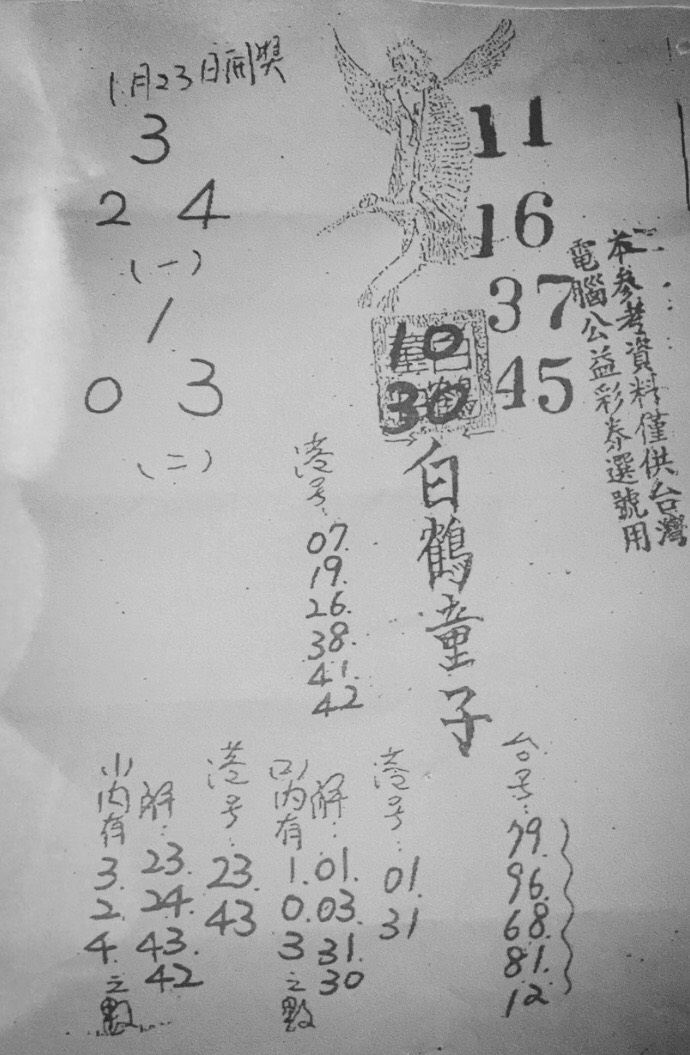 1月23日開獎
3
2 4
(一)
1
0 3
(二)
11
16
37
45
10
30
白鶴童子
本參考資料僅供台灣
電腦公益彩券選號用
白鶴童子
港号:
07.
19.
26.
38.
41.
42
台号:
79.
96.
68.
81.
12
港号:
01.
31
解:
01.
03.
31.
30
(2)內有
1.
0.
3
之數
港号:
23.
43
解:
23.
24.
43.
42
(1)內有
3.
2.
4.
之數